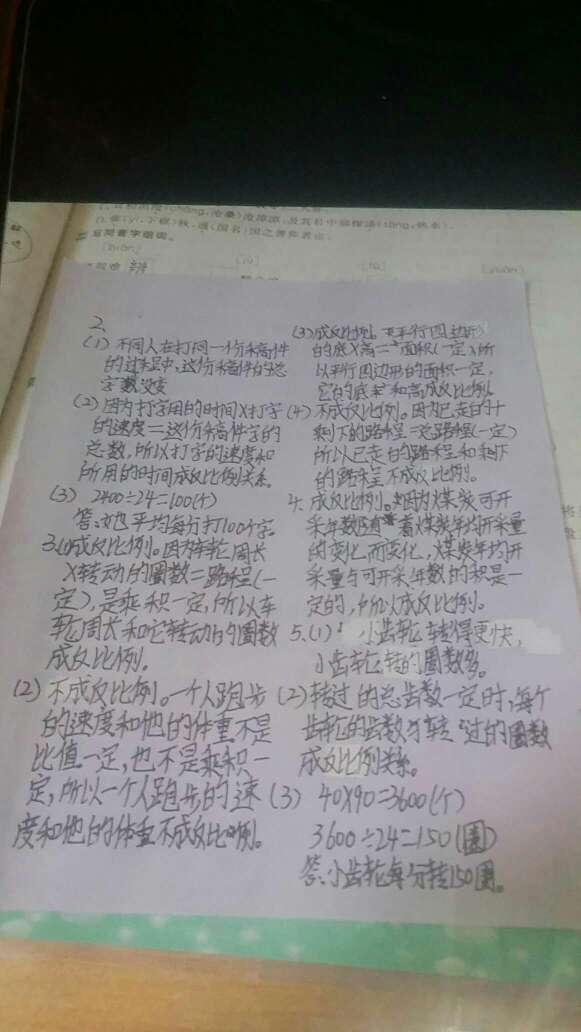 2.
(1) 不同人在打同一份稿件
的过程中,这份稿件的总
字数没变
(2) 因为打字用的时间×打字
的速度=这份稿件字的
总数,所以打字的速度和
所用的时间成反比例关系。
(3) 2400÷24=100(个)
答:她平均每分打100个字。
3.(1)成反比例。因为车轮周长
×转动的圈数=路程(一
定),是乘积一定,所以车
轮周长和它转动的圈数
成反比例。
(2) 不成反比例。一个人跑步
的速度和他的体重不是
比值一定,也不是乘积一
定,所以一个人跑步的速
度和他的体重不成反比例。
(3) 成反比例。平行四边形
的底×高=面积(一定),所
以平行四边形的面积一定,
它的底和高成反比例。
(4) 不成反比例。因为已走的+
剩下的路程=总路程(一定)
所以已走的路程和剩下
的路程不成反比例。
4. 成反比例。因为煤炭可开
采年数随着煤炭年均开采量
的变化而变化,煤炭年均开
采量与可开采年数的积是一
定的,所以成反比例。
5.(1) 小齿轮转得更快,
小齿轮转的圈数多。
(2) 转过的总齿数一定时,每个
齿轮的齿数与转过的圈数
成反比例关系。
(3) 40×90=3600(个)
3600÷24=150(圈)
答:小齿轮每分转150圈。